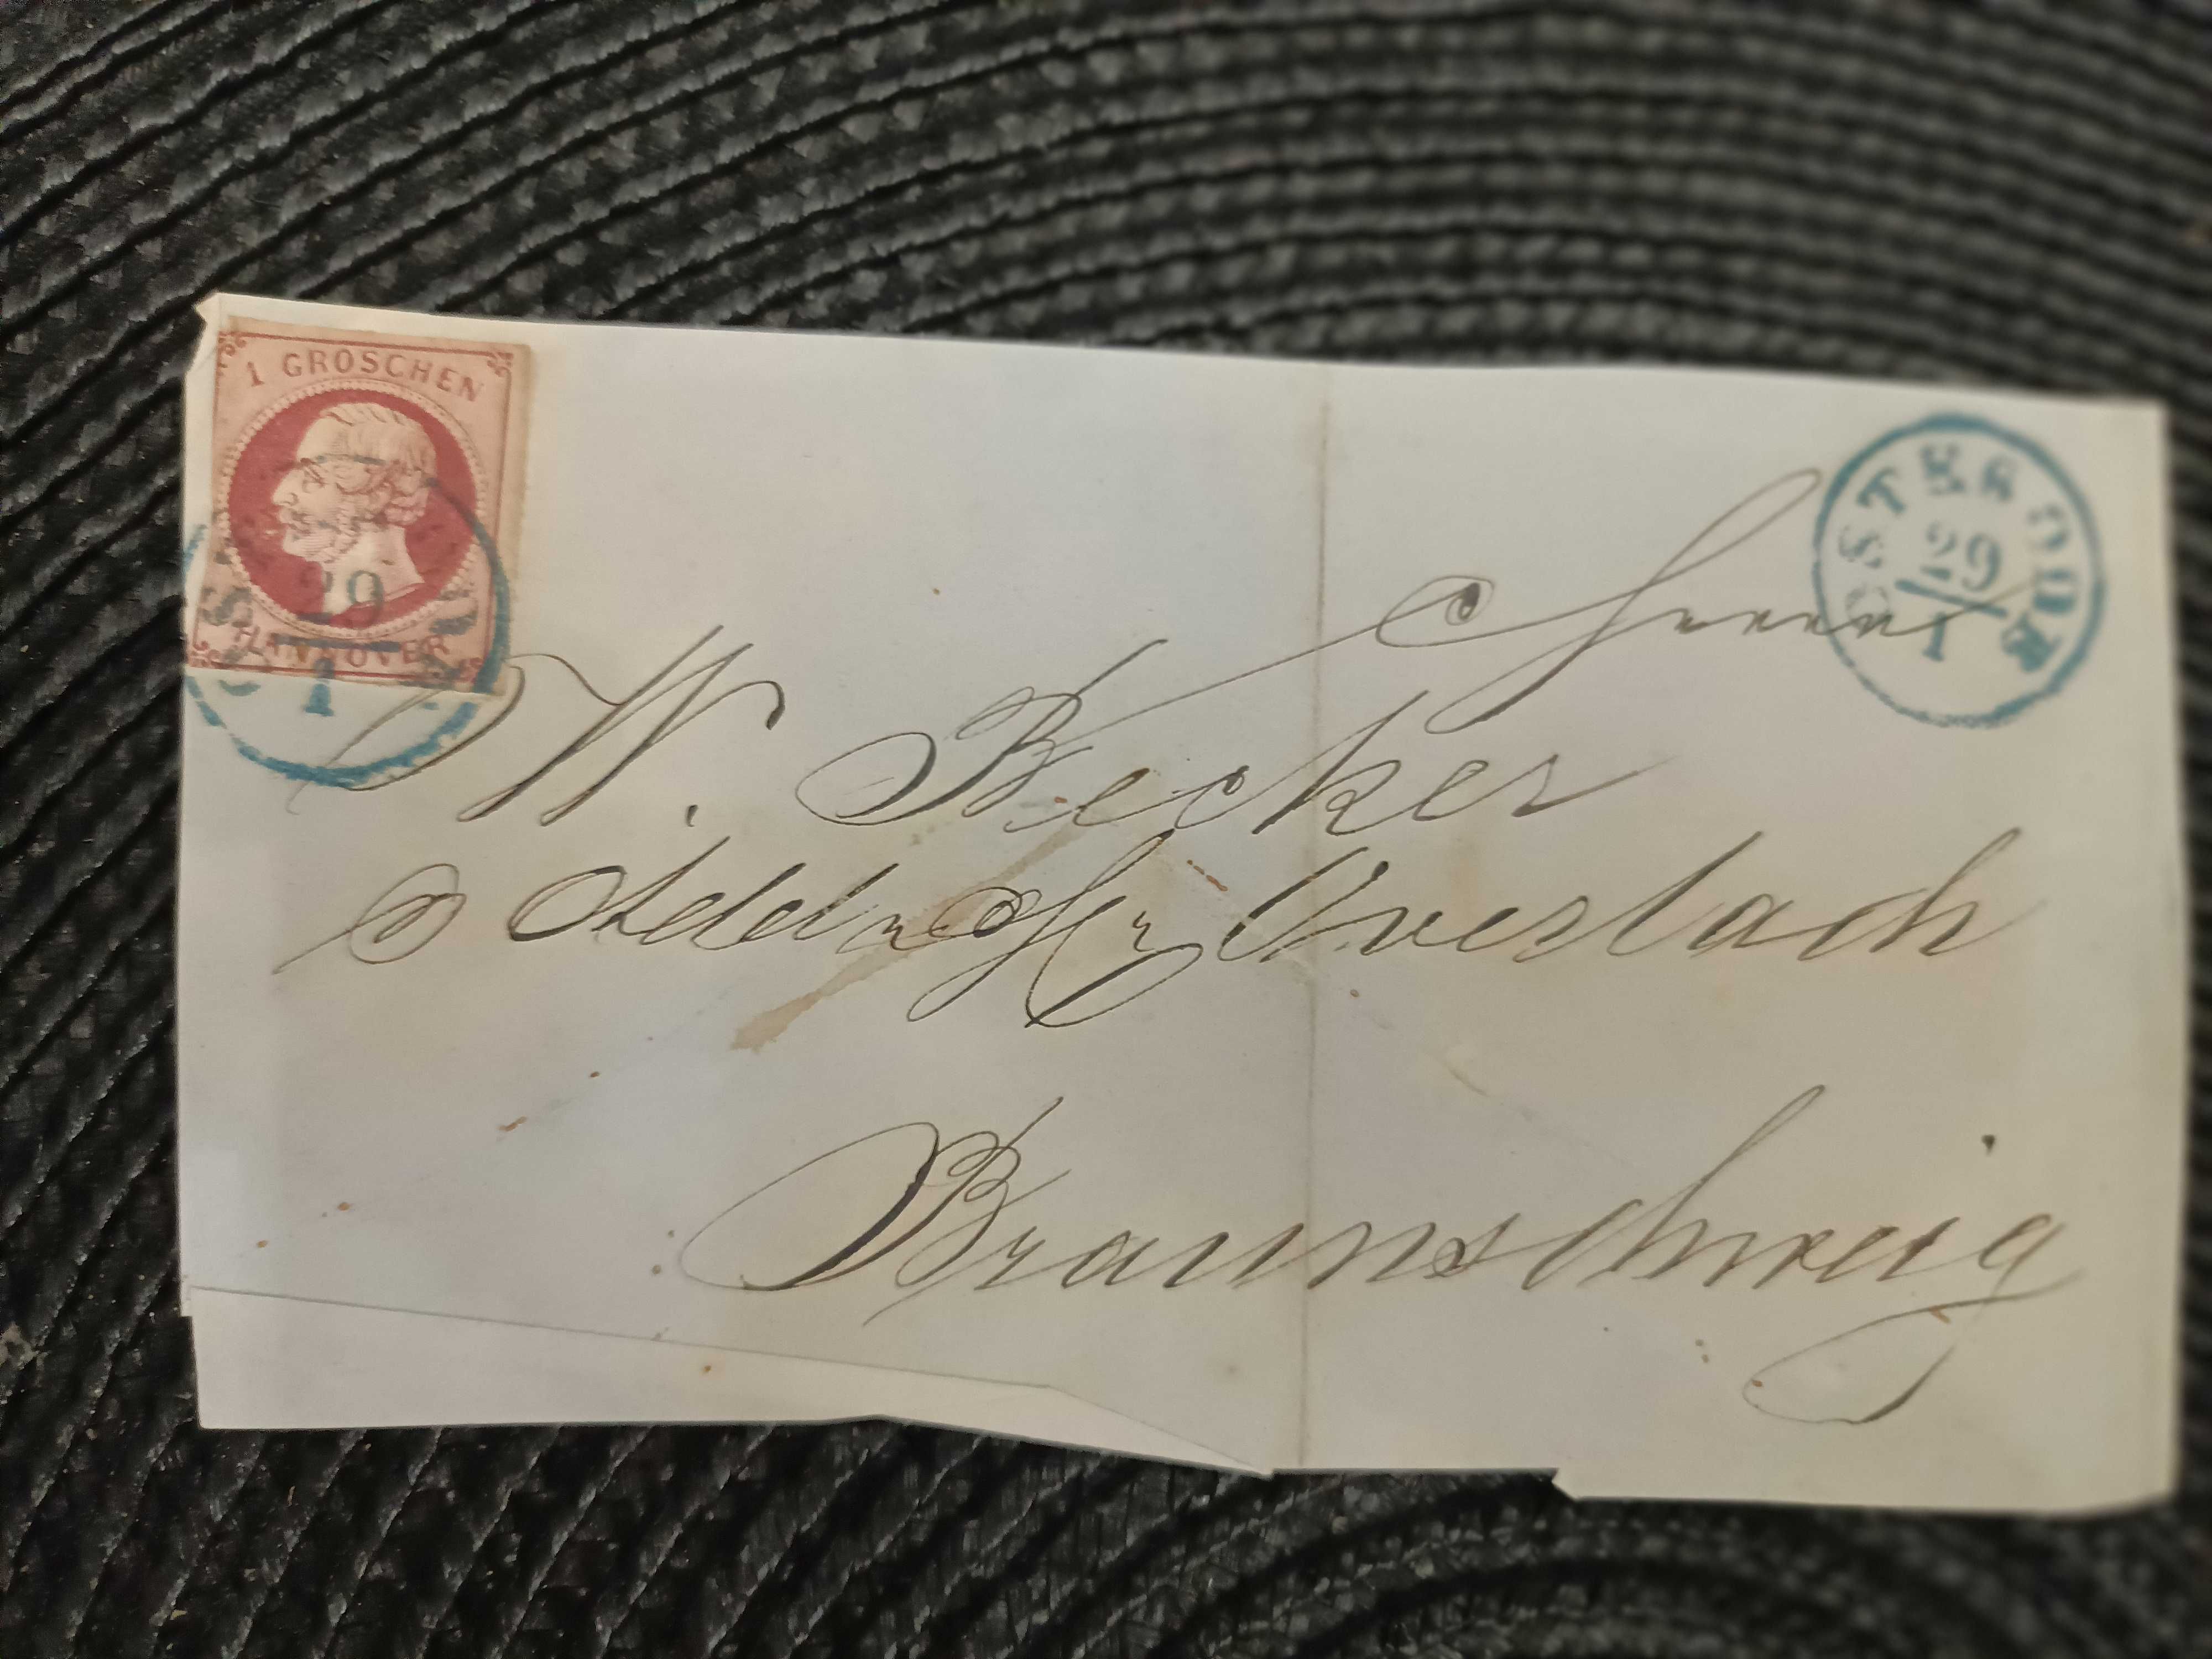 1 GROSCHEN
HANNOVER
29
1
OSTERODE
29
1
Herrn
W. Becker
Braunschweig